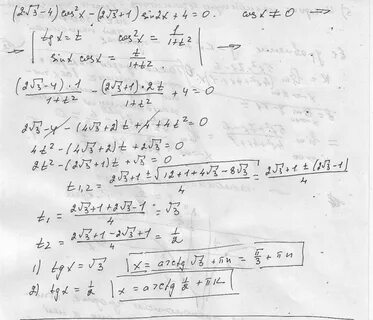 (2√3-4)cos²x-(2√3+1)sin2x+4=0. cosx≠0 →
→ | tgx=t cos²x=1/(1+t²) |
| sinx cosx=t/(1+t²) | →
(2√3-4)·1/(1+t²) - (2√3+1)·2t/(1+t²) + 4=0
2√3-4-(4√3+2)t+4+4t²=0
4t²-(4√3+2)t+2√3=0
2t²-(2√3+1)t+√3=0
t₁,₂=(2√3+1±√(12+1+4√3-8√3))/4=(2√3+1±(2√3-1))/4
t₁=(2√3+1+2√3-1)/4=√3
t₂=(2√3+1-2√3+1)/4=1/2
1) tgx=√3 x=arctg√3+πn=π/3+πn
2) tgx=1/2 x=arctg 1/2+πk